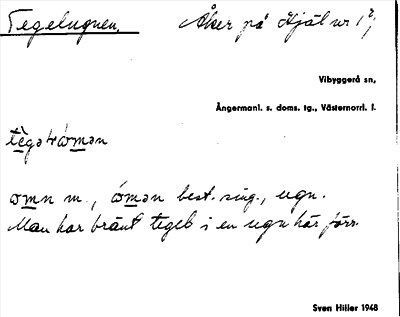 Tegelugnen. Åker på Hjäl nr 1²,
Vibyggerå sn,
Ångermanl. s. doms. tg., Västernorrl. l.
omn m., óman best. sing., ugn.
Man har bränt tegel i en ugn här förr.
Sven Hiller 1948